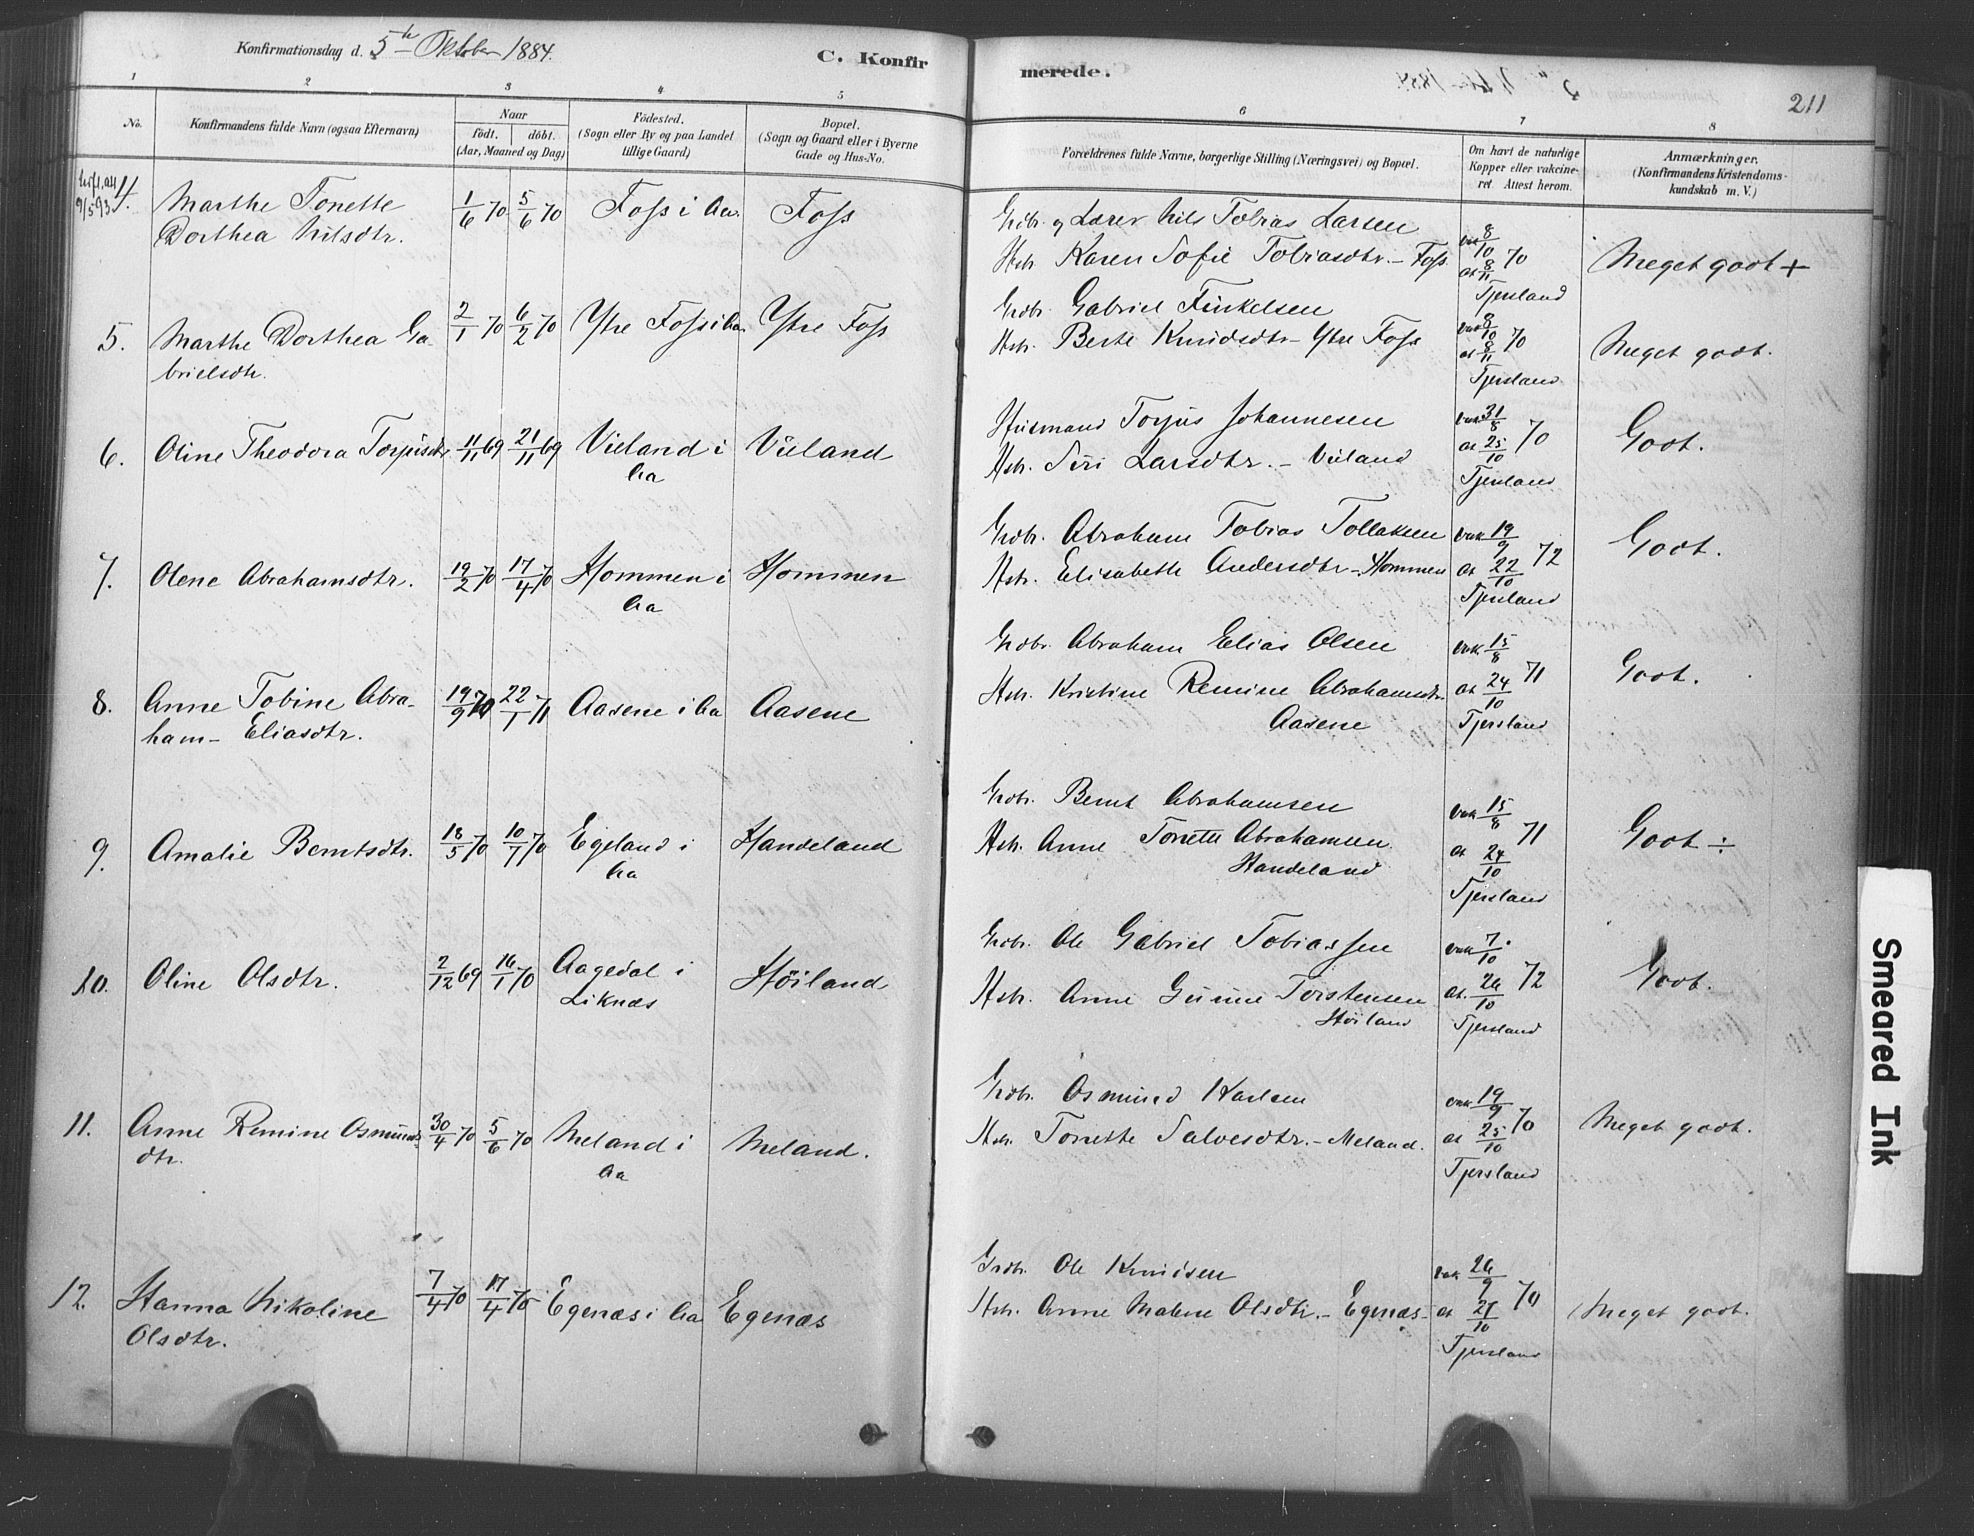 Konfirmationsdag d. 5te Oktober 1884.
C. Konfirmerede.
211
1 2 3 4 5 6 7 8
No.
Konfirmandens fulde Navn (ogsaa Efternavn)
Naar
födt. döbt.
(Aar, Maaned og Dag)
Födested.
(Sogn eller By og paa Landet
tillige Gaard)
Bopæl.
(Sogn og Gaard eller i Byerne
Gade og Hus-No.
Forældrenes fulde Navne, borgerlige Stilling (Næringsvei) og Bopæl.
Om havt de naturlige
Kopper eller vakcine-
ret. Attest herom.
Anmærkninger.
(Konfirmandens Kristendoms-
kundskab m. V.)
9/5 93
4. Marthe Tonette
Dorthea Nilsdtr.
1/6 70 5/6 70 Foss i Aa. Foss
Grdbr. og Lærer Nils Tobias Larsen
Hstr. Karen Sofie Tobiasdtr. - Foss
vak 8/10 at 8/11 70
Tjersland
Meget godt +
5. Marthe Dorthea Ga-
brielsdtr.
2/1 70 6/2 70 Ytre Foss i Aa. Ytre Foss
Grdbr. Gabriel Finkelsen
Hstr. Berte Knudsdtr - Ytre Foss
vak 8/10 at 8/11 70
Tjersland
Meget godt.
6. Oline Theodora Torjusdtr.
11/11 69 21/11 69 Vieland i
Aa
Vieland
Husmand Torjus Johannesen
Hstr. Siri Larsdtr. - Vieland
vak 31/8 at 25/10 70
Tjersland
Godt.
7. Olene Abrahamsdtr.
19/2 70 17/4 70 Hommen i
Aa
Hommen
Grdbr. Abraham Tobias Tollaksen
Hstr. Elisabeth Andersdtr - Hommen
vak 19/9 at 22/10 72
Tjersland
Godt.
8. Anne Tobine Abra-
ham- Eliasdtr.
19/9 70 22/1 71 Aasene i Aa Aasene
Grdbr. Abraham Elias Olsen
Hstr. Kristine Remine Abrahamsdtr.
Aasene
vak. 15/8 at 24/10 71
Tjersland
Godt.
9. Amalie Berntsdtr.
18/5 70 10/7 70 Egeland i
Aa
Handeland
Grdbr. Bernt Abrahamsen
Hstr. Anne Tonette Abrahamsen
Handeland
vak 15/8 at 24/10 71
Tjersland
Godt ÷
10. Oline Olsdtr.
2/12 69 16/1 70 Aagedal i
Liknæs
Höiland
Grdbr. Ole Gabriel Tobiassen
Hstr. Anne Gurine Torstensen
Höiland
vak 7/10 at. 26/10 72
Tjersland
Godt.
11. Anne Remine Osmunds-
dtr.
30/4 70 5/6 70 Meland i
Aa
Meland.
Grdbr. Osmund Karlsen
Hstr. Tonette Salvesdtr. - Meland.
vak 19/9 at 25/10 70
Tjersland
Meget godt.
12. Hanna Nikoline
Olsdtr.
7/4 70 17/4 70 Egenæs i Aa Egenæs
Grdbr. Ole Knudsen
Hstr. Anne Malene Olsdtr. - Egenæs -
vak 26/9 at 27/10 70
Tjersland
Meget godt.
Smeared Ink